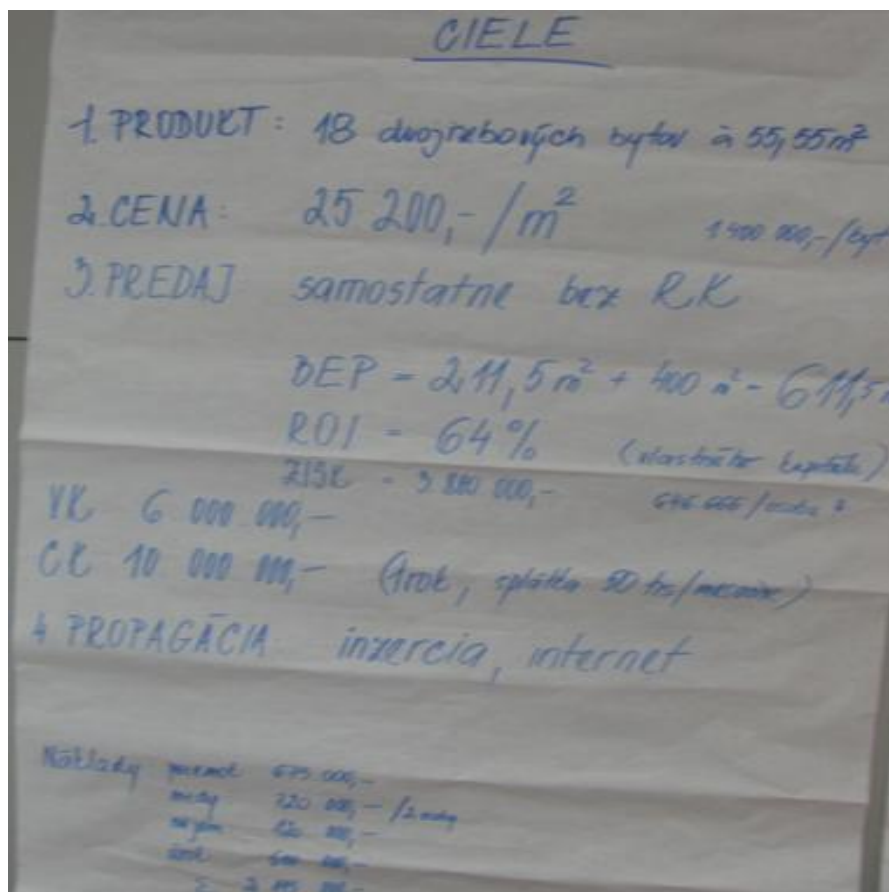 CIELE
1. PRODUKT: 18 dvojizbových bytov à 55,55m²
2. CENA: 25 200,-/m² 1 400 000,-/byt
3. PREDAJ samostatne bez RK
BEP = 211,5 m² + 400 m² = 611,5 m
ROI = 64% (vlastného kapitálu)
ZISK = 3 880 000,-
VK 6 000 000,-
CK 10 000 000,- (1rok, splátka 50 tis/mesiac)
4. PROPAGÁCIA inzercia, internet
Náklady 675 000,-
mzdy 720 000,-/2 osoby
120 000,-
úrok 600 000,-
Σ 2